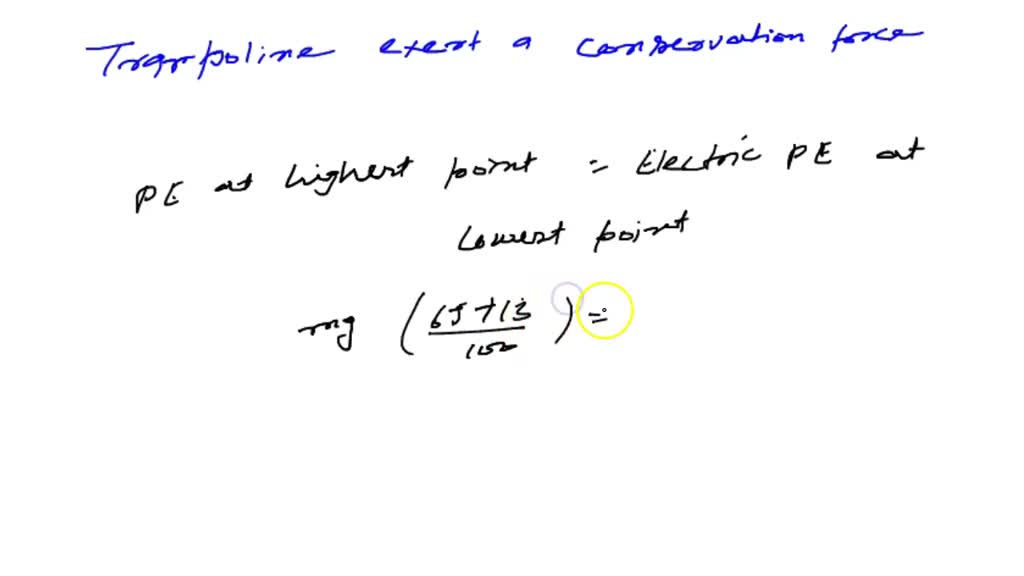 Trampoline exert a conservation force
PE at highest point = Electric PE at
Lowest point
mg (65+13/100) =